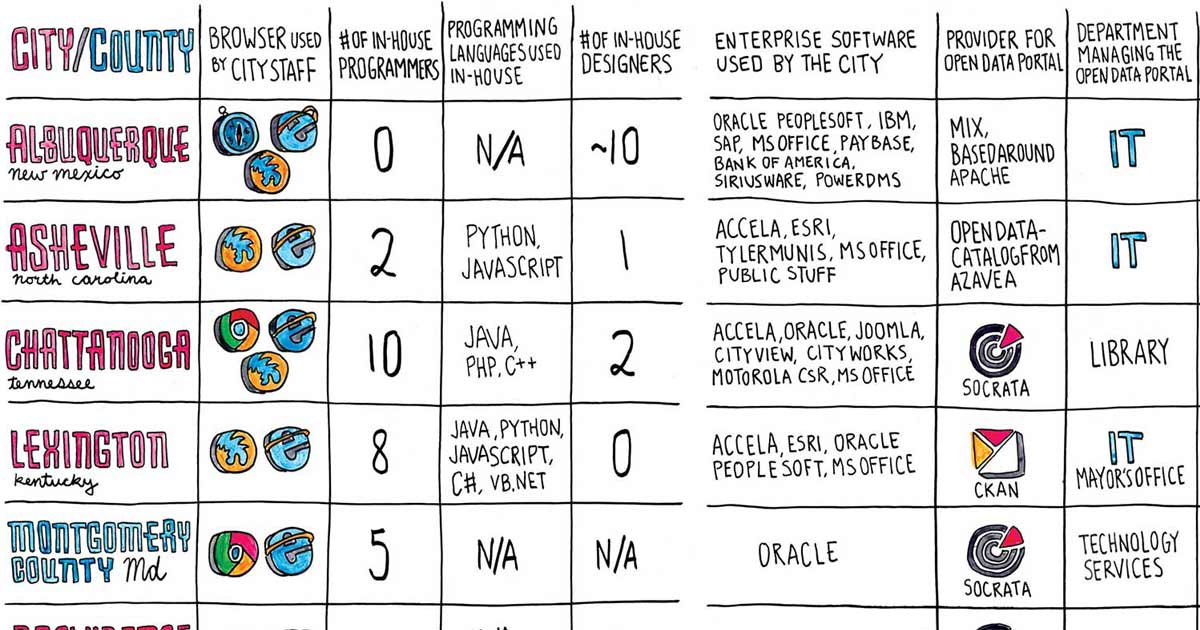 CITY/COUNTY
BROWSER USED
BY CITY STAFF
# OF IN-HOUSE
PROGRAMMERS
PROGRAMMING
LANGUAGES USED
IN-HOUSE
# OF IN-HOUSE
DESIGNERS
ENTERPRISE SOFTWARE
USED BY THE CITY
PROVIDER FOR
OPEN DATA PORTAL
DEPARTMENT
MANAGING THE
OPEN DATA PORTAL
ALBUQUERQUE
new mexico
0
N/A
~10
ORACLE PEOPLESOFT, IBM,
SAP, MS OFFICE, PAYBASE,
BANK OF AMERICA,
SIRIUSWARE, POWERDMS
MIX,
BASED AROUND
APACHE
IT
ASHEVILLE
north carolina
2
PYTHON,
JAVASCRIPT
1
ACCELA, ESRI,
TYLERMUNIS, MS OFFICE,
PUBLIC STUFF
OPEN DATA-
CATALOG FROM
AZAVEA
IT
CHATTANOOGA
tennessee
10
JAVA,
PHP, C++
2
ACCELA, ORACLE, JOOMLA,
CITYVIEW, CITYWORKS,
MOTOROLA CSR, MS OFFICE
SOCRATA
LIBRARY
LEXINGTON
kentucky
8
JAVA, PYTHON,
JAVASCRIPT,
C#, VB.NET
0
ACCELA, ESRI, ORACLE
PEOPLESOFT, MS OFFICE
CKAN
IT
MAYOR'S OFFICE
MONTGOMERY
COUNTY Md
5
N/A
N/A
ORACLE
SOCRATA
TECHNOLOGY
SERVICES